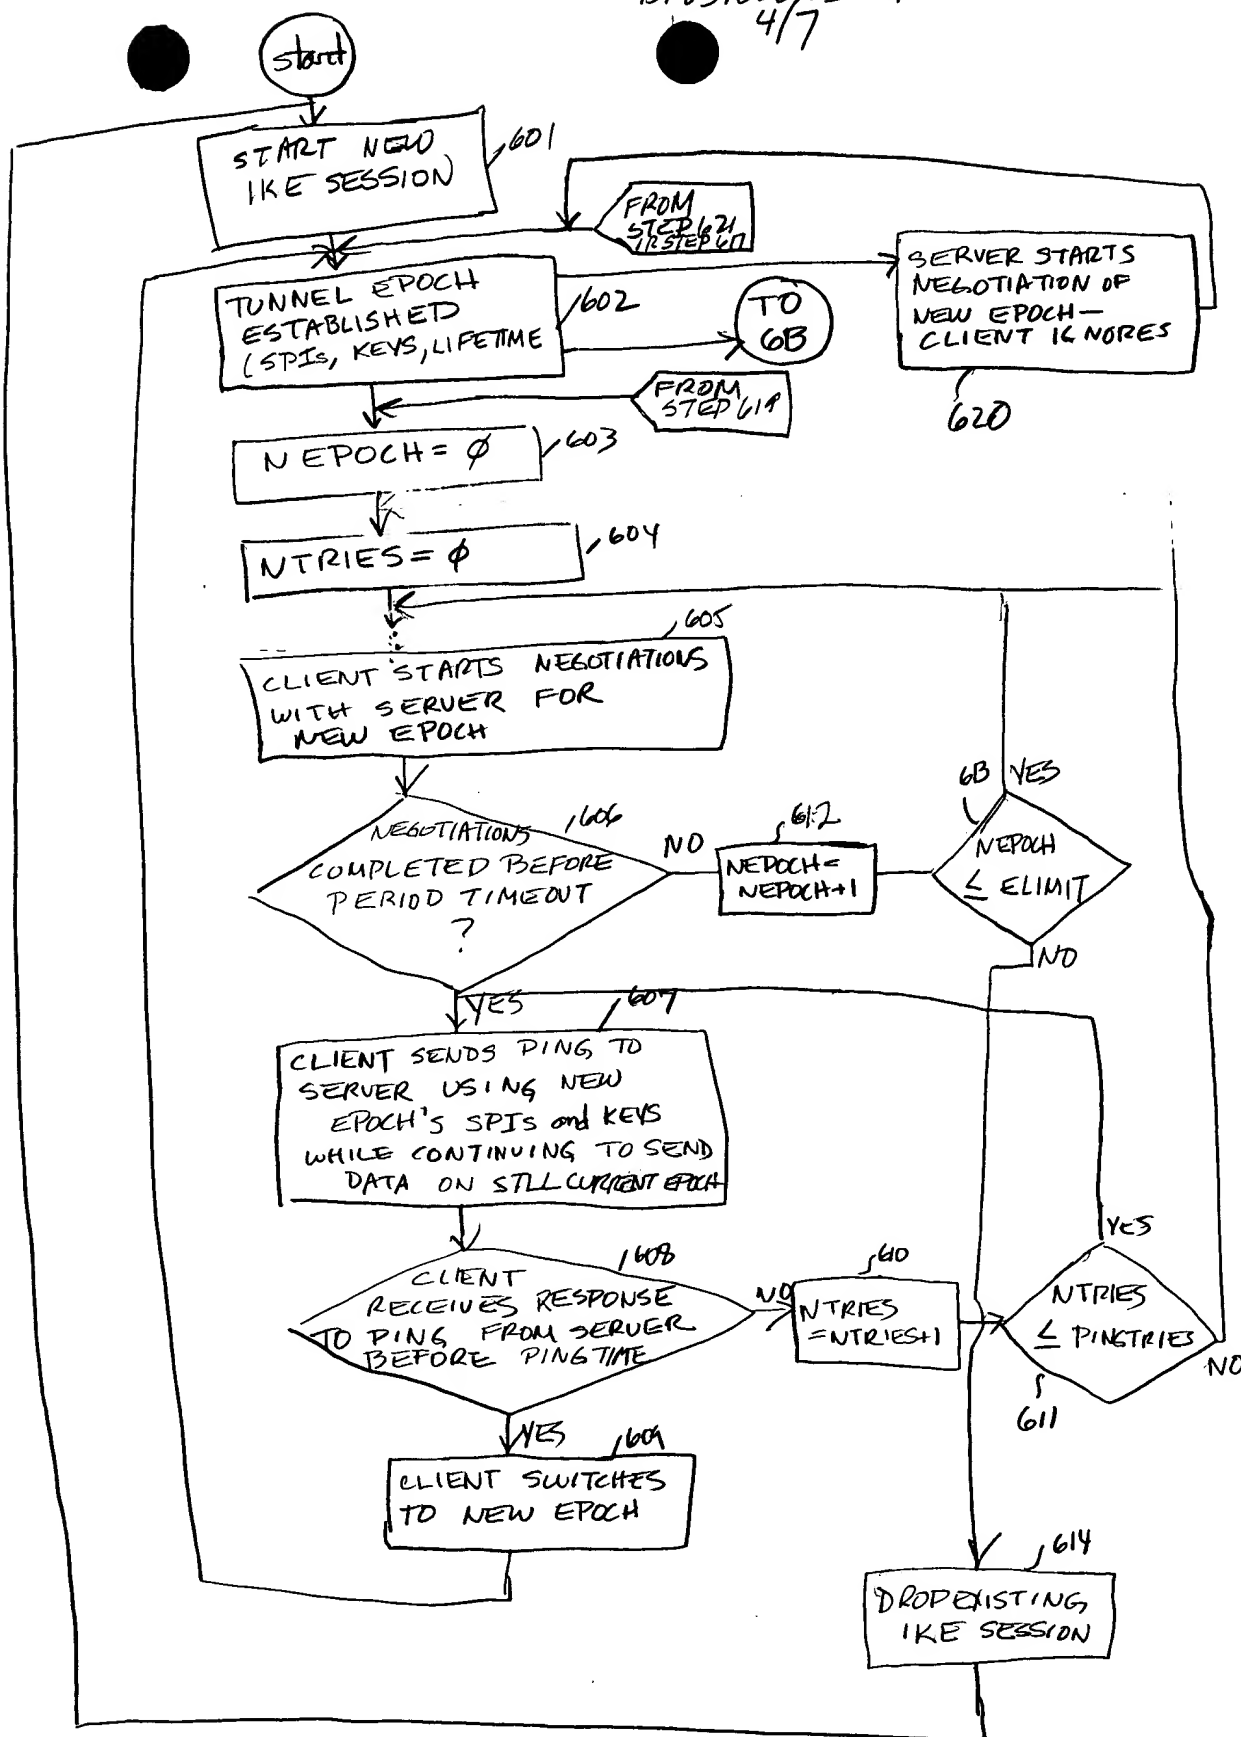 4/7
start
START NEW
IKE SESSION
601
FROM
STEP 621
TUNNEL EPOCH
ESTABLISHED
(SPIs, KEYS, LIFETIME
602
TO
6B
SERVER STARTS
NEGOTIATION OF
NEW EPOCH—
CLIENT IGNORES
620
FROM
STEP 619
N EPOCH = ϕ
603
NTRIES = ϕ
604
605
CLIENT STARTS NEGOTIATIONS
WITH SERVER FOR
NEW EPOCH
NEGOTIATIONS
COMPLETED BEFORE
PERIOD TIMEOUT
?
606
NO
612
NEPOCH =
NEPOCH+1
6B
YES
NEPOCH
≤ ELIMIT
NO
YES
607
CLIENT SENDS PING TO
SERVER USING NEW
EPOCH'S SPIs and KEYS
WHILE CONTINUING TO SEND
DATA ON STLL CURRENT EPOCH
CLIENT
RECEIVES RESPONSE
TO PING FROM SERVER
BEFORE PINGTIME
608
NO
610
NTRIES
=NTRIES+1
YES
NTRIES
≤ PINGTRIES
NO
611
YES
609
CLIENT SWITCHES
TO NEW EPOCH
614
DROP EXISTING
IKE SESSION